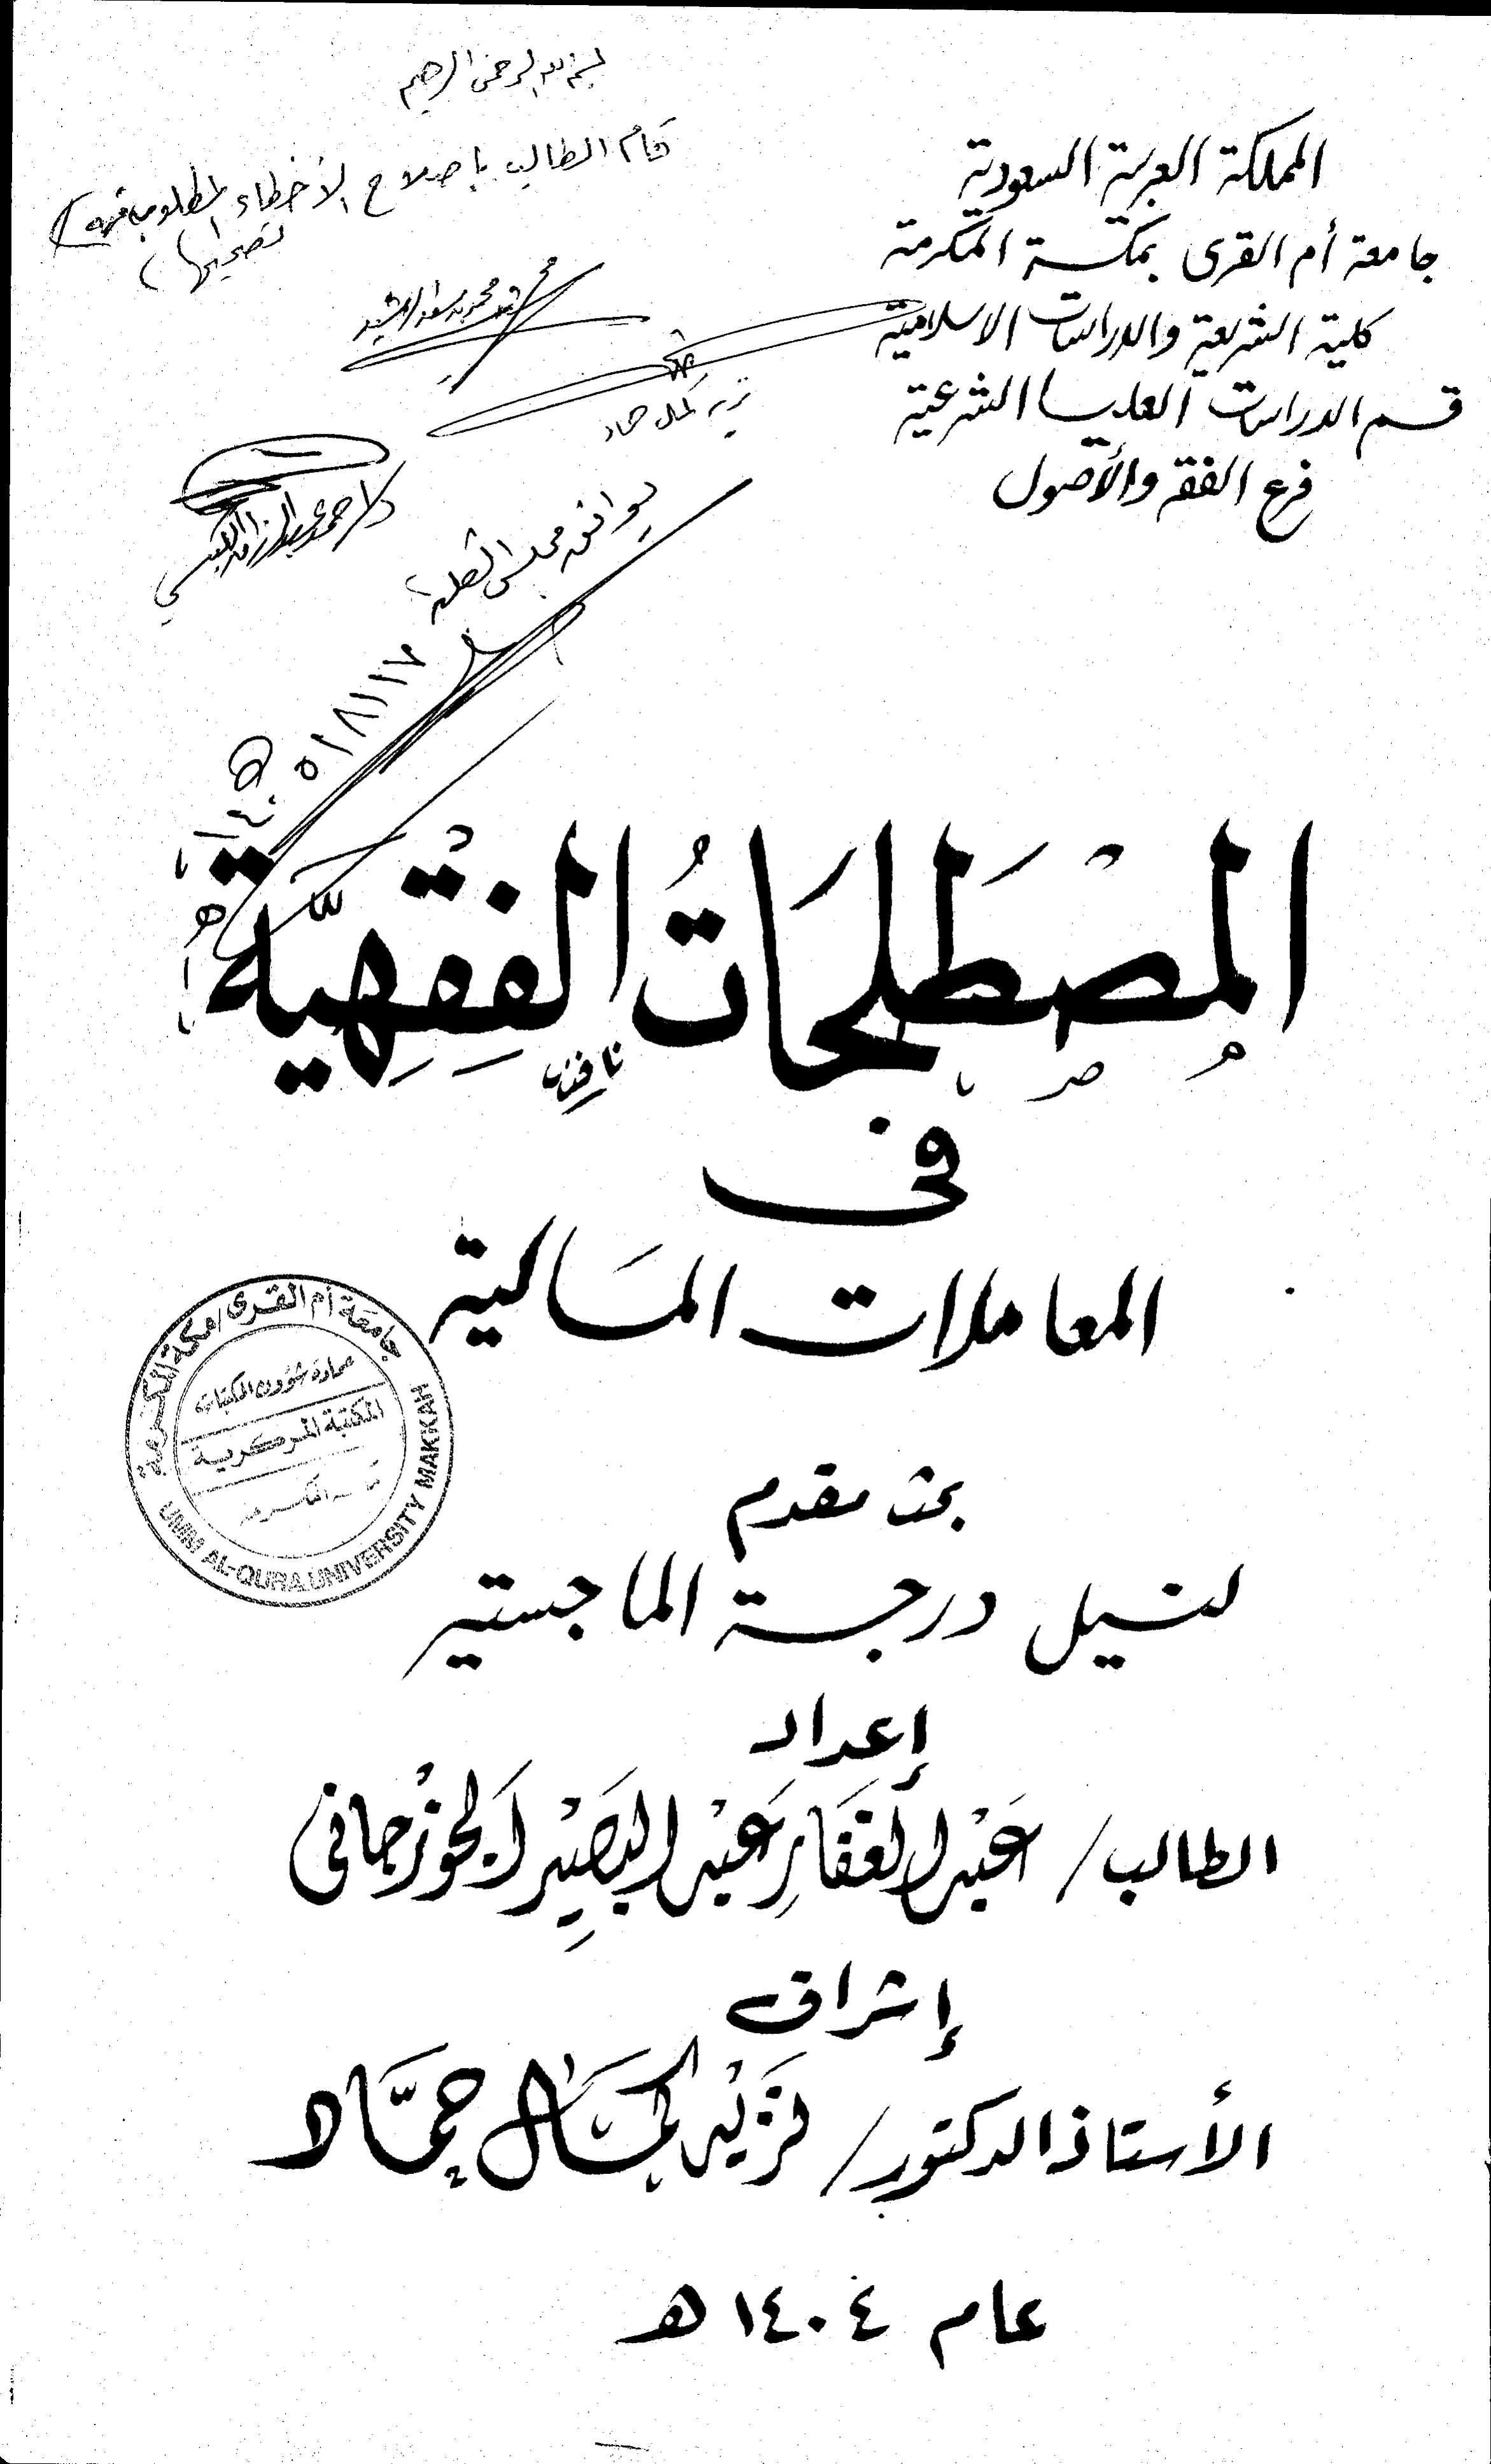 المملكة العربية السعودية
جامعة أم القرى بمكة المكرمة
كلية الشريعة والدراسات الاسلامية
قسم الدراسات العليا الشرعية
فرع الفقه والأصول
بسم الله الرحمن الرحيم
قام الطالب بإصلاح الأخطاء المطلوب منه
تصحيحها
نزيه كمال حماد
المُصْطَلَحَاتُ الفِقْهِيَّة
فى
المعاملات المَالية
جامعة أم القرى / مكة المكرمة
عمادة شؤون المكتبات
المكتبة المركزية
UMM AL-QURA UNIVERSITY MAKKAH
بحث مقدم
لنيل درجة الماجستير
إعداد
الطالب / عَبْد الغَفَّار عَبْد البَصِيْر الجَوْزجانى
إشراف
الأستاذ الدكتور / نَزيْه كَمَال حَمَّاد
عام ١٤٠٤ هـ